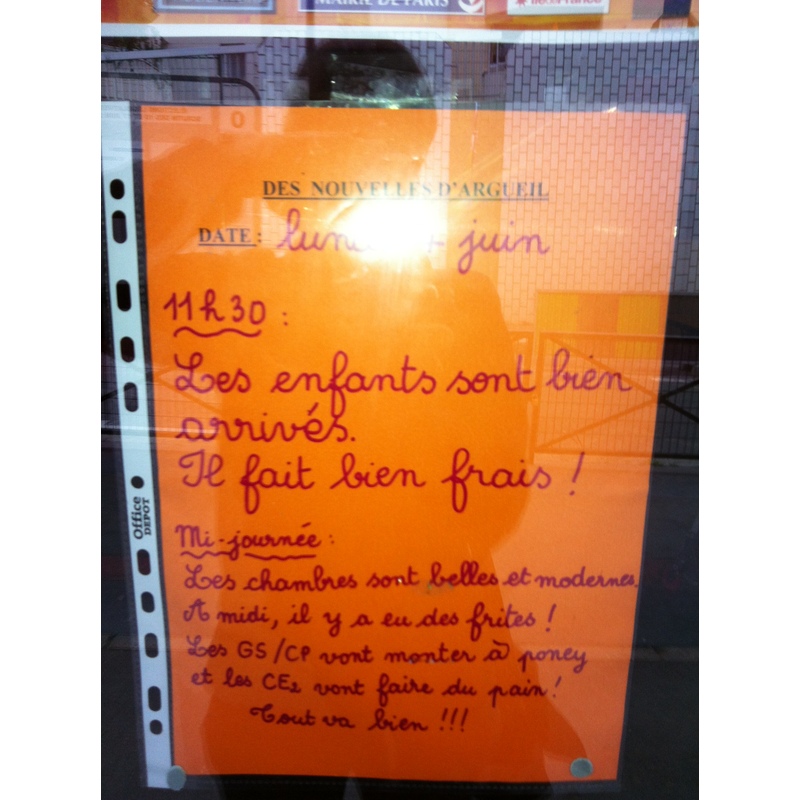 MAIRIE DE PARIS
DES NOUVELLES D'ARGUEIL
DATE : juin
11h30 :
Les enfants sont bien
arrivés.
Il fait bien frais !
Office
DEPOT
Mi-journée :
Les chambres sont belles et modernes.
A midi, il y a eu des frites !
Les GS/CP vont monter à poney
et les CE2 vont faire du pain !
Tout va bien !!!